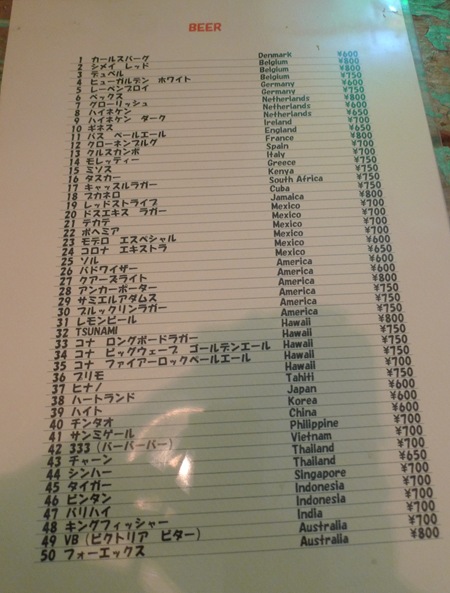 BEER
1 カールスバーグ Denmark ¥600
2 シメイ レッド Belgium ¥800
3 デュベル Belgium ¥800
4 ヒューガルデン ホワイト Belgium ¥750
5 レーベンブロイ Germany ¥600
6 ベックス Germany ¥750
7 グローリッシュ Netherlands ¥800
8 ハイネケン Netherlands ¥600
9 ハイネケン ダーク Netherlands ¥650
10 ギネス Ireland ¥700
11 バス ペールエール England ¥650
12 クローネンブルグ France ¥800
13 クルスカンポ Spain ¥700
14 モレッティー Italy ¥700
15 ミソス Greece ¥750
16 タスカー Kenya ¥750
17 キャッスルラガー South Africa ¥750
18 ブカネロ Cuba ¥750
19 レッドストライプ Jamaica ¥800
20 ドスエキス ラガー Mexico ¥700
21 テカテ Mexico ¥700
22 ボヘミア Mexico ¥700
23 モデロ エスペシャル Mexico ¥700
24 コロナ エキストラ Mexico ¥600
25 ソル Mexico ¥650
26 バドワイザー America ¥600
27 クアーズライト America ¥600
28 アンカーポーター America ¥800
29 サミエルアダムス America ¥750
30 ブルックリンラガー America ¥750
31 レモンビール America ¥700
32 TSUNAMI Hawaii ¥750
33 コナ ロングボードラガー Hawaii ¥750
34 コナ ビッグウェーブ ゴールデンエール Hawaii ¥750
35 コナ ファイアーロックペールエール Hawaii ¥750
36 プリモ Hawaii ¥700
37 ヒナノ Tahiti ¥750
38 ハートランド Japan ¥600
39 ハイト Korea ¥600
40 チンタオ China ¥600
41 サンミゲール Philippine ¥700
42 333 (バーバーバー) Vietnam ¥700
43 チャーン Thailand ¥650
44 シンハー Thailand ¥700
45 タイガー Singapore ¥700
46 ビンタン Indonesia ¥700
47 バリハイ Indonesia ¥700
48 キングフィッシャー India ¥700
49 VB (ビクトリア ビター) Australia ¥700
50 フォーエックス Australia ¥800